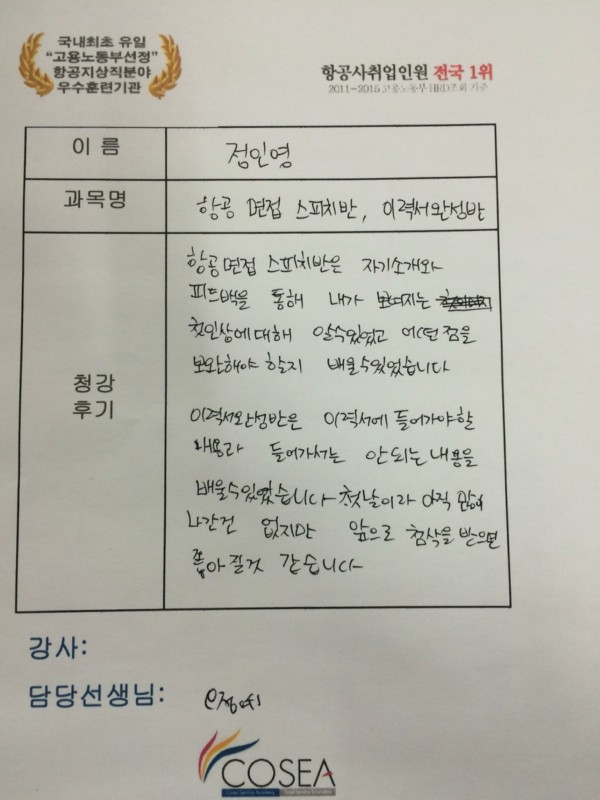 국내최초 유일
"고용노동부선정"
항공지상직분야
우수훈련기관
항공사취업인원 전국 1위
2011~2015 고용노동부 HRD조회 기준
이 름
정인영
과목명
항공 면접 스피치반, 이력서완성반
청강
후기
항공면접 스피치반은 자기소개와
피드백을 통해 내가 보여지는
첫인상에대해 알수있었고 어떤점을
보완해야 할지 배울수있었습니다
이력서완성반은 이력서에 들어가야할
내용과 들어가서는 안되는 내용을
배울수있었습니다 첫날이라 아직 많이
나간건 없지만 앞으로 첨삭을 받으면
좋아질것 같습니다
강사:
담당선생님:
COSEA